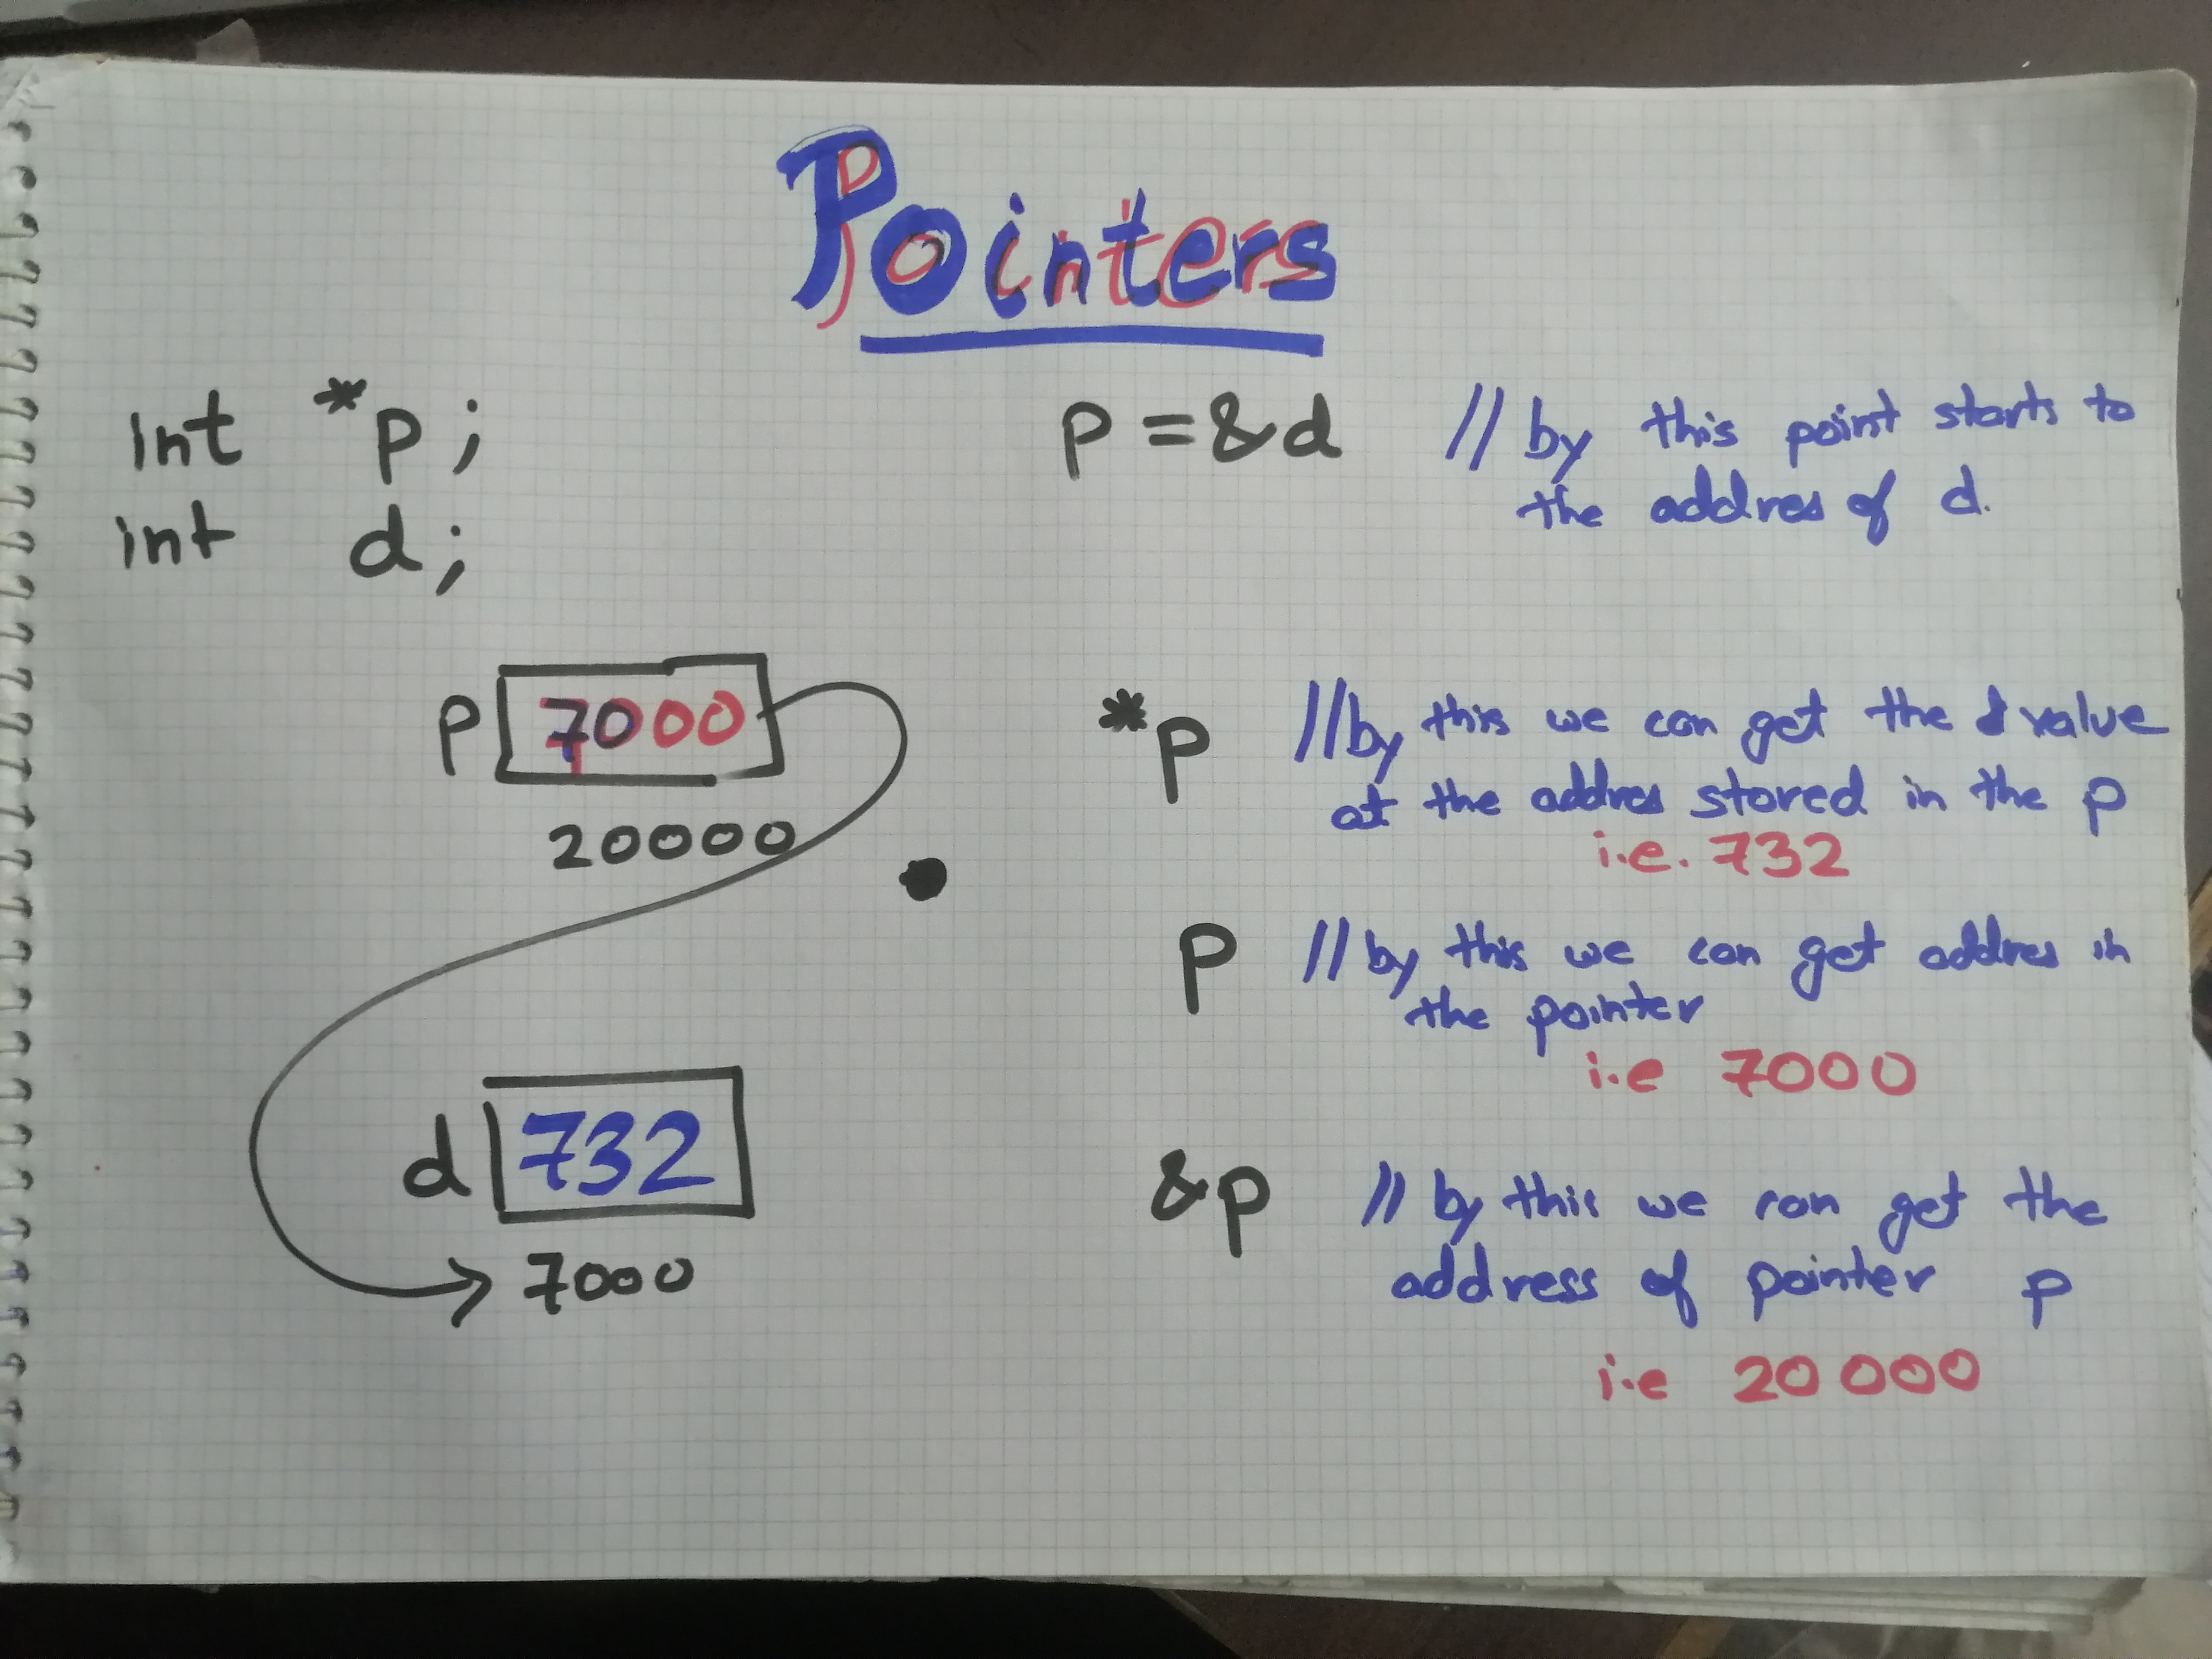 Pointers
int *p;
int d;
p = &d // by this point starts to
the addres of d.
p 7000
20000
d 732
7000
*p //by this we can get the value
at the addres stored in the p
i.e. 732
p // by this we can get addres in
the pointer
i.e 7000
&p // by this we can get the
address of pointer p
i.e 20 000